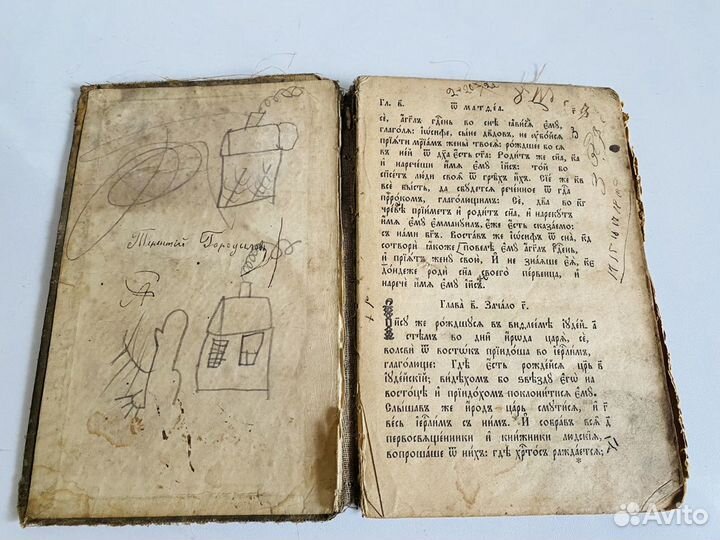 Терентий Городилов
Гл. в҃. Ѿ матѳеа.
се́, а҆гг҃лъ гд҇ень во снѣ̀ ꙗ҆ви́сѧ є҆мꙋ̀,
глаго́лѧ: і҆ѡ́сифе, сы́не дв҃довъ, не ᲂу҆бо́йсѧ
прїѧ́ти мрїа́мъ жены̀ твоеѧ̀: ро́ждшее бо сѧ
въ не́й ѿ дх҃а є҆́сть ст҃а: Роди́тъ же сн҃а,
и҆ нарече́ши и҆́мѧ є҆мꙋ̀ і҆и҃съ: то́й бо
сп҃се́тъ лю́ди своѧ̀ ѿ грѣ̑хъ и҆́хъ. Сїе́ же
всѐ бы́сть, да сбꙋ́детсѧ рече́нное ѿ гд҇а
прⷪ҇ро́комъ, глаго́лющимъ: Сѐ, дв҃а во
чре́вѣ прїи́метъ и҆ роди́тъ сн҃а, и҆ нарекꙋ́тъ
и҆́мѧ є҆мꙋ̀ є҆ммануи́лъ, є҆́же є҆́сть сказа́емо:
съ на́ми бг҃ъ. Воста́въ же і҆ѡ́сифъ ѿ сна̀,
сотворѝ ꙗ҆́коже повелѣ̀ є҆мꙋ̀ а҆́гг҃лъ гд҇ень,
и҆ прїѧ́тъ женꙋ̀ свою̀, И҆ не зна́ѧше є҆ѧ̀,
до́ндеже родѝ сн҃а своего̀ пе́рвенца, и҆
наречѐ и҆́мѧ є҆мꙋ̀ і҆и҃съ.
Глава̀ в҃. Зача́ло г҃.
І҆и҃сꙋ же ро́ждшꙋсѧ въ виѳлее́мѣ і҆ꙋде́й-
стѣмъ во дни̑ и҆́рѡда царѧ̀, сѐ,
волсвѝ ѿ востѡ́къ прїидо́ша во і҆ерⷭ҇ли́мъ,
глаго́люще: Гдѣ̀ є҆́сть рожде́йсѧ цр҃ь
і҆ꙋде́йскїй; ви́дѣхомъ бо ѕвѣздꙋ̀ є҆гѡ̀ на
восто́цѣ и҆ прїидо́хомъ поклони́тисѧ є҆мꙋ̀.
Слы́шавъ же и҆́рѡдъ ца́рь смꙋти́сѧ, и҆
ве́сь і҆ерⷭ҇ли́мъ съ ни́мъ. И҆ собра́въ всѧ̑
первосвѧще́нники и҆ кни́жники людскі́ѧ,
вопроша́ше ѿ ни́хъ: гдѣ̀ хрⷭ҇то́съ ражда́етсѧ;
Avito